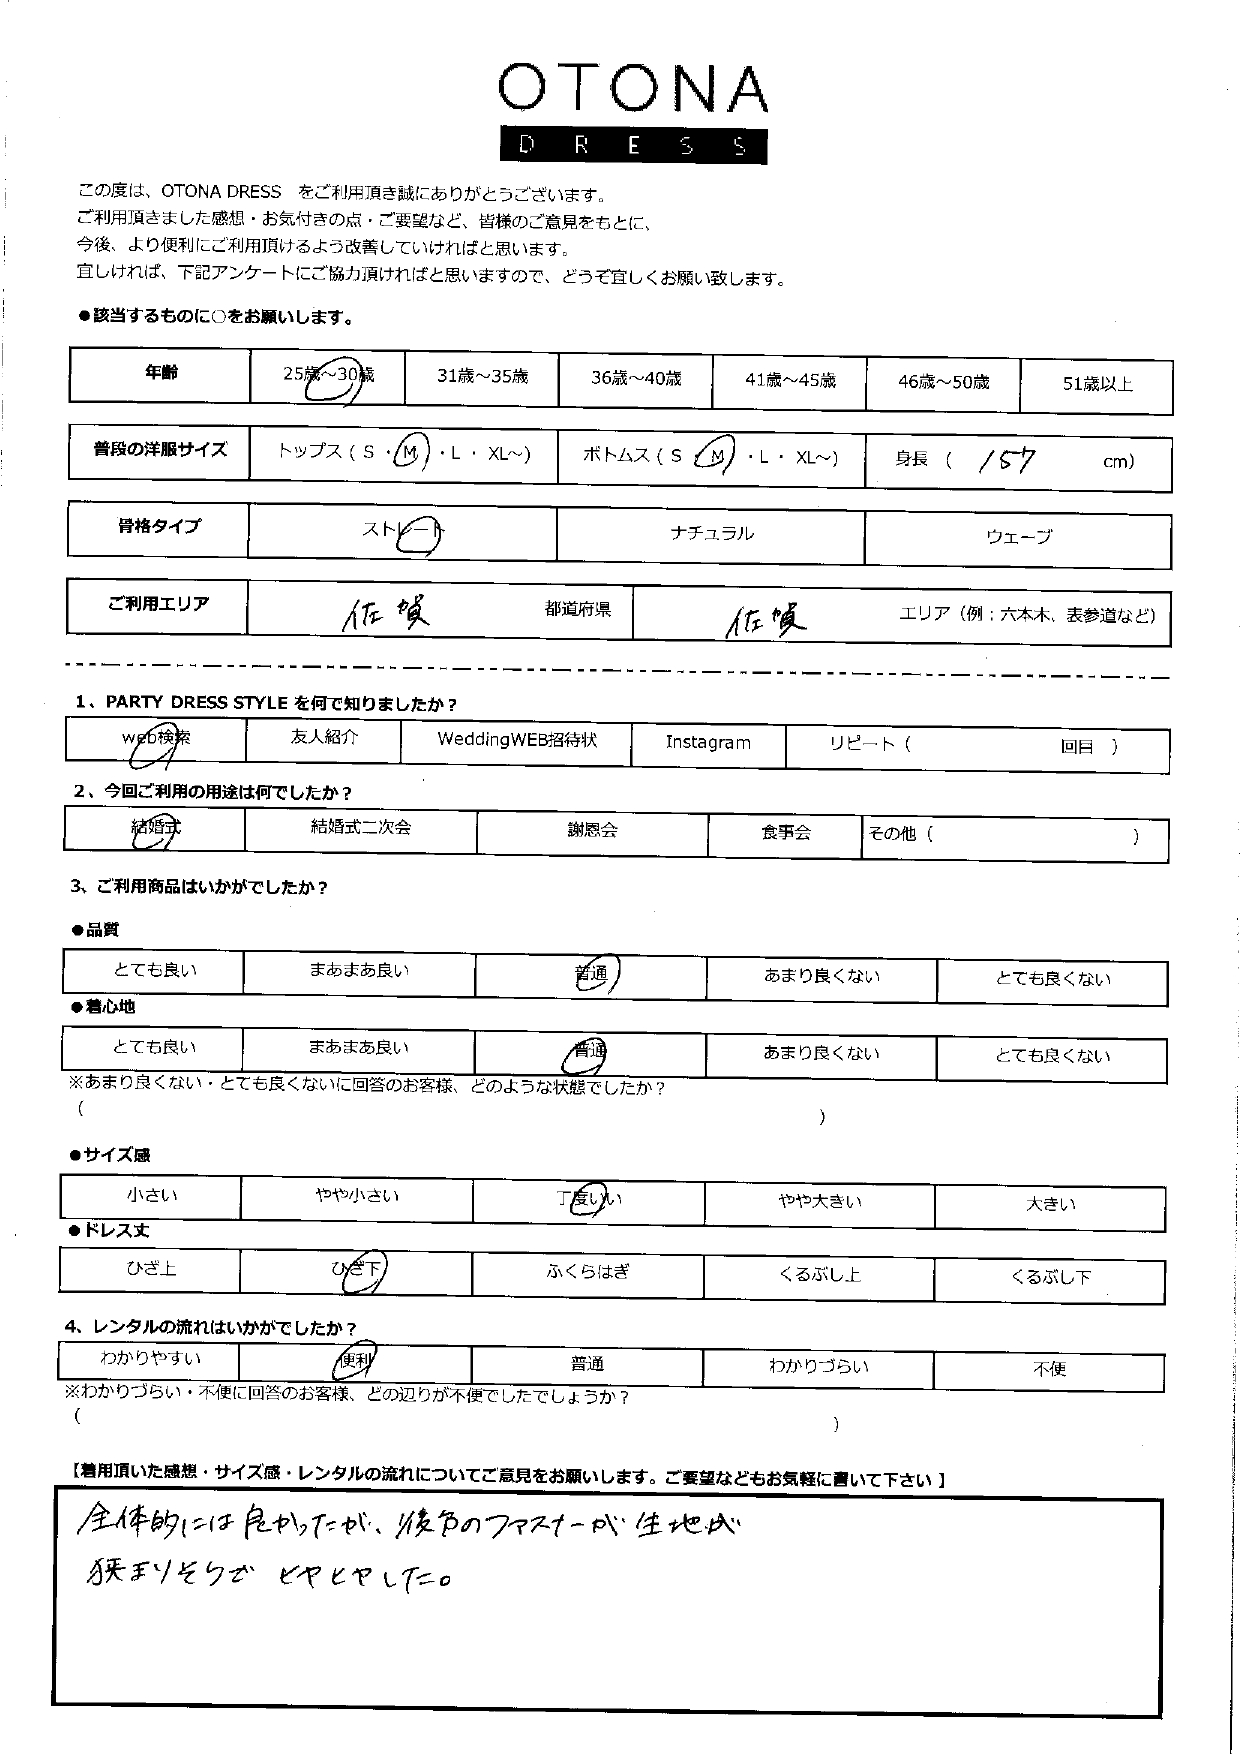 OTONA
DRESS
この度は、OTONA DRESS をご利用頂き誠にありがとうございます。
ご利用頂きました感想・お気付きの点・ご要望など、皆様のご意見をもとに、
今後、より便利にご利用頂けるよう改善していければと思います。
宜しければ、下記アンケートにご協力頂ければと思いますので、どうぞ宜しくお願い致します。
●該当するものに○をお願いします。
年齢 25歳～30歳 31歳～35歳 36歳～40歳 41歳～45歳 46歳～50歳 51歳以上
普段の洋服サイズ トップス ( S ・ M ・ L ・ XL～) ボトムス ( S ・ M ・ L ・ XL～) 身長 ( 157 cm)
骨格タイプ ストレート ナチュラル ウェーブ
ご利用エリア 佐賀 都道府県 佐賀 エリア（例：六本木、表参道など）
1、PARTY DRESS STYLE を何で知りましたか？
web検索 友人紹介 WeddingWEB招待状 Instagram リピート ( 回目 )
2、今回ご利用の用途は何でしたか？
結婚式 結婚式二次会 謝恩会 食事会 その他 ( )
3、ご利用商品はいかがでしたか？
●品質
とても良い まあまあ良い 普通 あまり良くない とても良くない
●着心地
とても良い まあまあ良い 普通 あまり良くない とても良くない
※あまり良くない・とても良くないに回答のお客様、どのような状態でしたか？
( )
●サイズ感
小さい やや小さい 丁度いい やや大きい 大きい
●ドレス丈
ひざ上 ひざ下 ふくらはぎ くるぶし上 くるぶし下
4、レンタルの流れはいかがでしたか？
わかりやすい 便利 普通 わかりづらい 不便
※わかりづらい・不便に回答のお客様、どの辺りが不便でしたでしょうか？
( )
【着用頂いた感想・サイズ感・レンタルの流れについてご意見をお願いします。ご要望などもお気軽に書いて下さい 】
全体的には良かったが、後ろのファスナーが生地が
狭まりそうで ヒヤヒヤした。